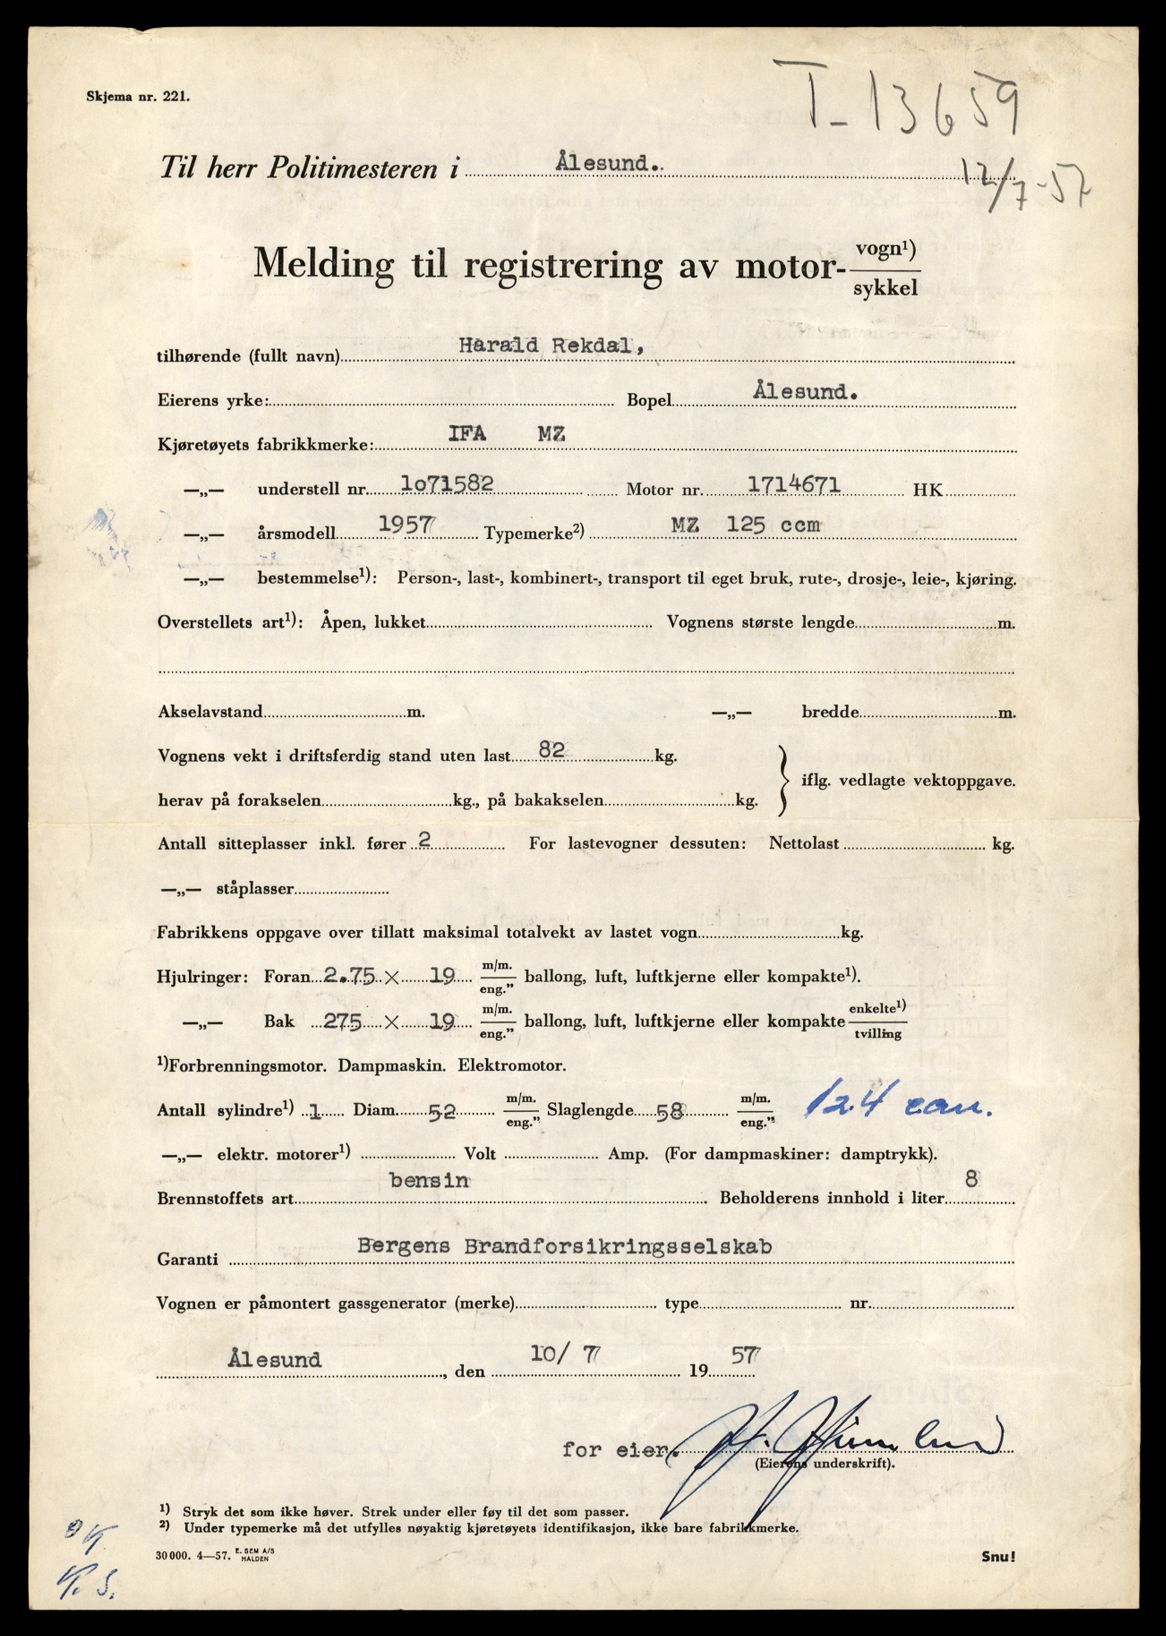 Skjema nr. 221.
T-13659
Til herr Politimesteren i Ålesund.
12/7-57
Melding til registrering av motor- vogn¹) sykkel
tilhørende (fullt navn) Harald Rekdal,
Eierens yrke: Bopel Ålesund.
Kjøretøyets fabrikkmerke: IFA MZ
—„— understell nr. 1o71582 Motor nr. 1714671 HK
—„— årsmodell 1957 Typemerke²) MZ 125 ccm
—„— bestemmelse¹): Person-, last-, kombinert-, transport til eget bruk, rute-, drosje-, leie-, kjøring.
Overstellets art¹): Åpen, lukket Vognens største lengde m.
Akselavstand m. —„— bredde m.
Vognens vekt i driftsferdig stand uten last 82 kg.
iflg. vedlagte vektoppgave.
herav på forakselen kg., på bakakselen kg.
Antall sitteplasser inkl. fører 2 For lastevogner dessuten: Nettolast kg.
—„— ståplasser
Fabrikkens oppgave over tillatt maksimal totalvekt av lastet vogn kg.
Hjulringer: Foran 2.75 × 19 m/m. eng." ballong, luft, luftkjerne eller kompakte¹).
—„— Bak 275 × 19 m/m. eng." ballong, luft, luftkjerne eller kompakte enkelte¹) tvilling
¹)Forbrenningsmotor. Dampmaskin. Elektromotor.
Antall sylindre¹) 1 Diam. 52 m/m. eng." Slaglengde 58 m/m. eng." 124 ccm.
—„— elektr. motorer¹) Volt Amp. (For dampmaskiner: damptrykk).
Brennstoffets art bensin Beholderens innhold i liter 8
Garanti Bergens Brandforsikringsselskab
Vognen er påmontert gassgenerator (merke) type nr.
Ålesund, den 10/ 7 19 57
for eier.
(Eierens underskrift).
¹) Stryk det som ikke høver. Strek under eller føy til det som passer.
²) Under typemerke må det utfylles nøyaktig kjøretøyets identifikasjon, ikke bare fabrikkmerke.
OK
K.S.
30 000. 4—57. E. SEM A/S HALDEN
Snu!